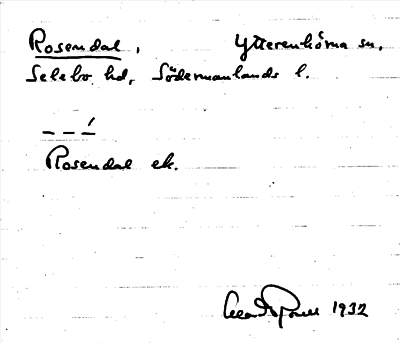 Rosendal, Ytterenhörna sn,
Selebo hd, Södermanlands l.
Rosendal ek.
1932